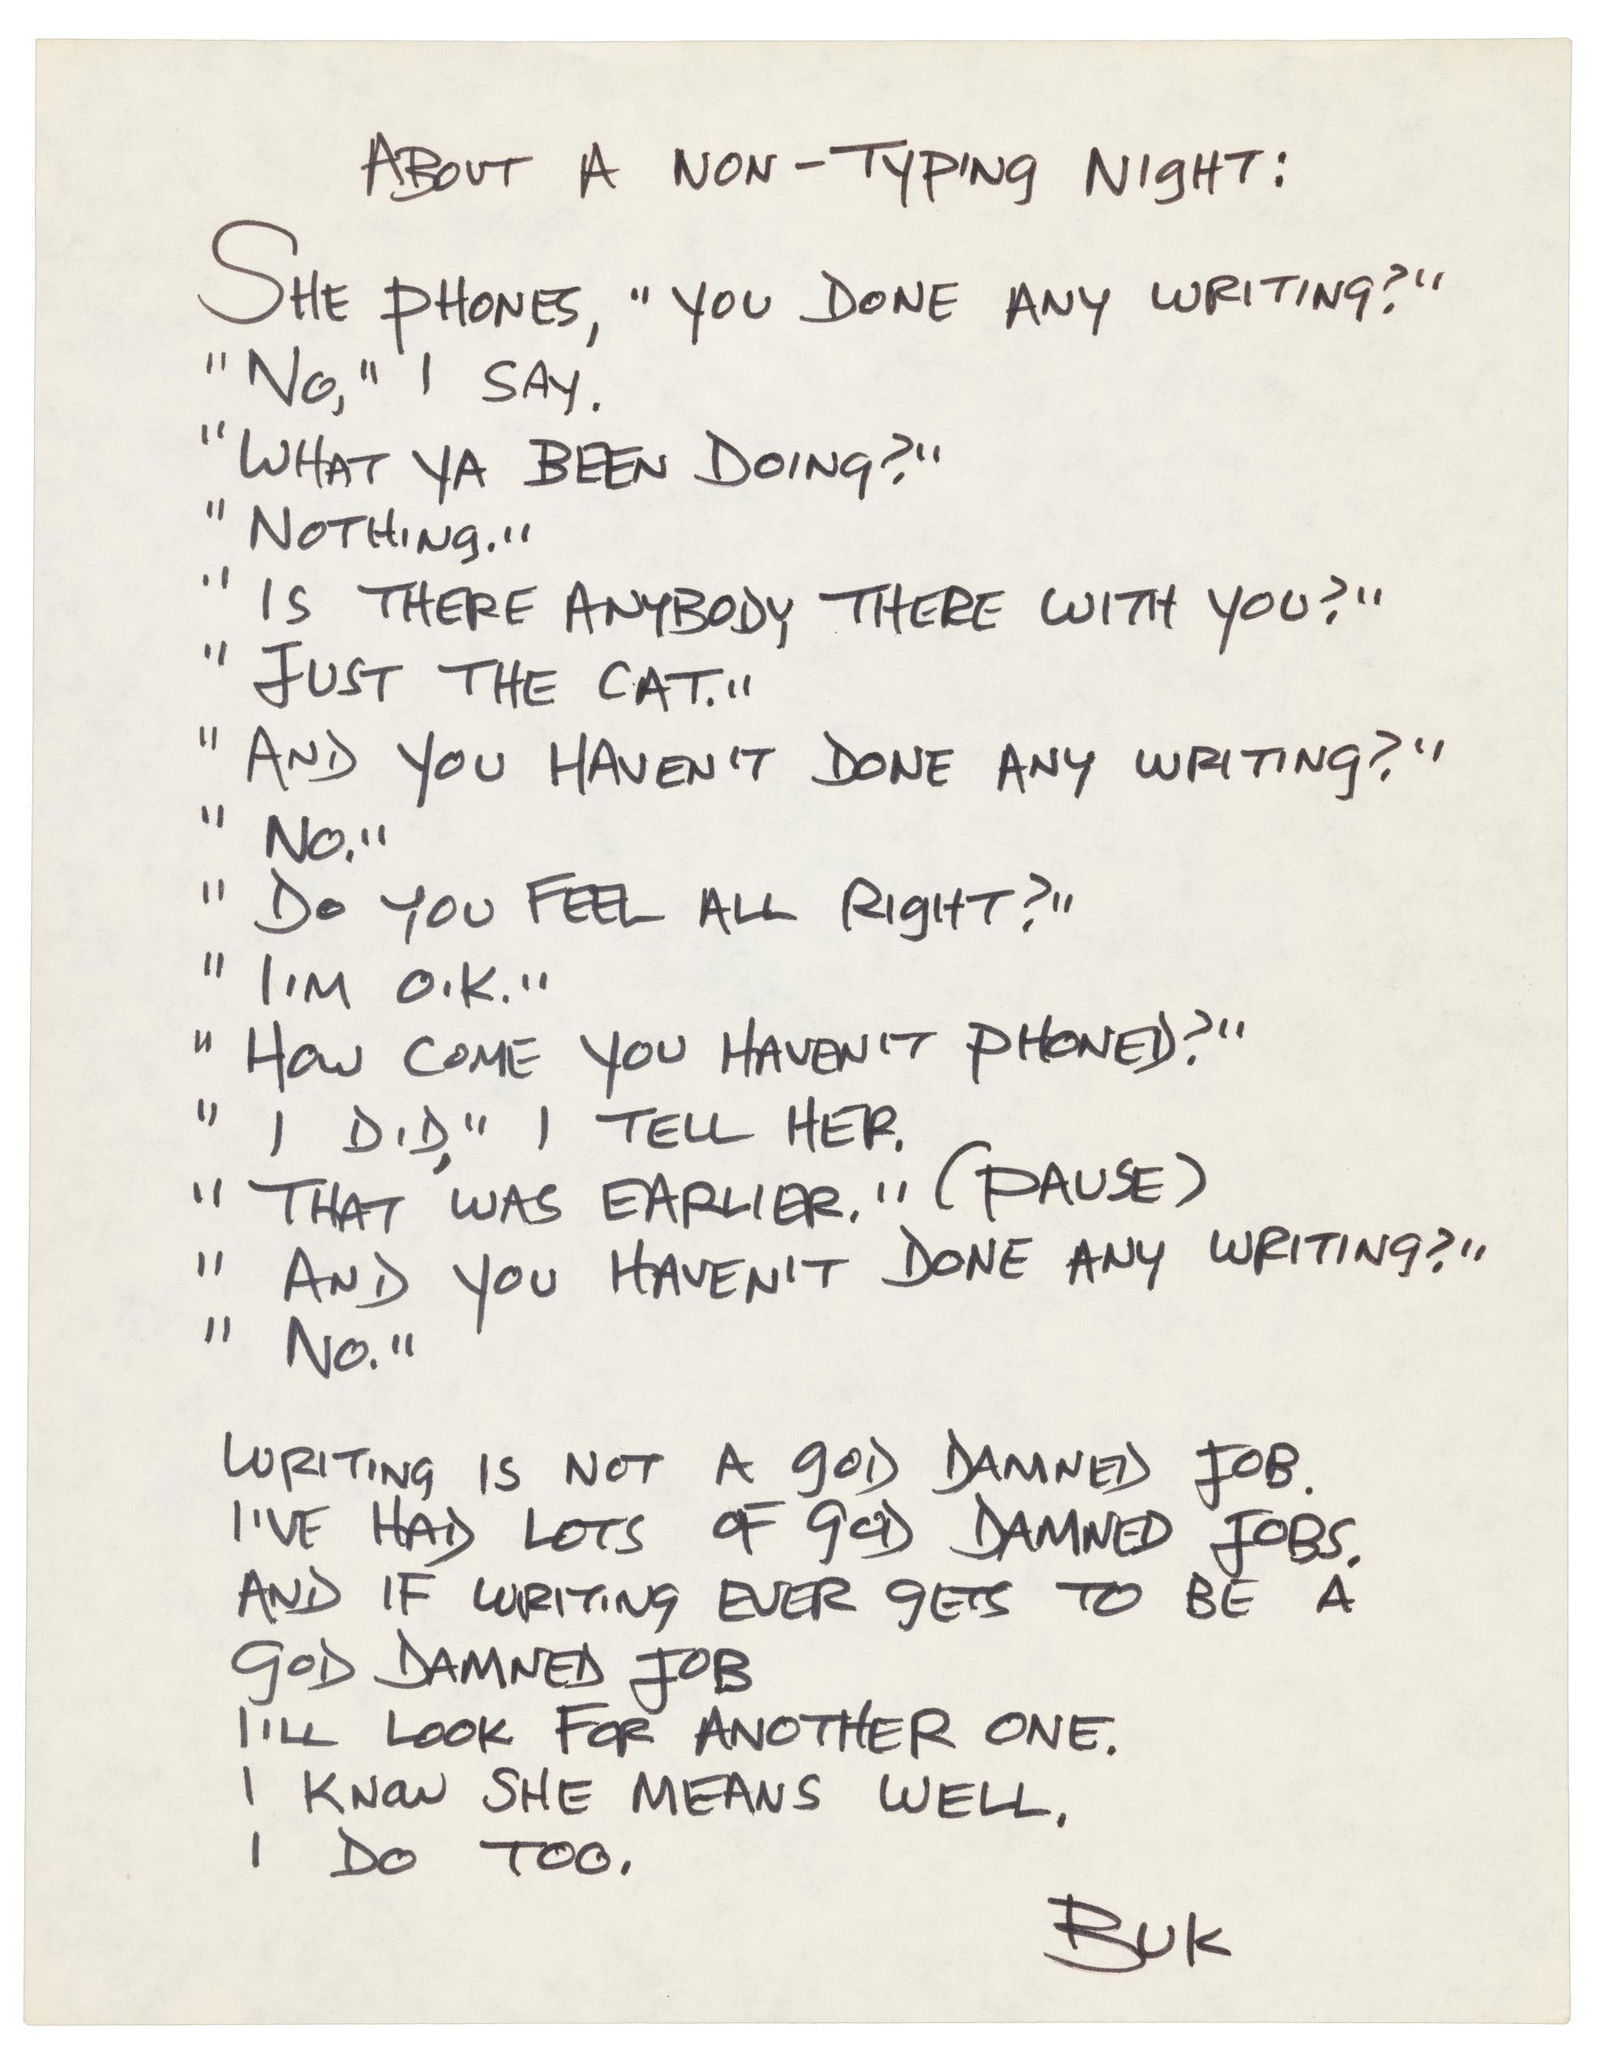 ABOUT A NON-TYPING NIGHT:
SHE PHONES, "YOU DONE ANY WRITING?"
"NO," I SAY.
"WHAT YA BEEN DOING?"
"NOTHING."
"IS THERE ANYBODY THERE WITH YOU?"
"JUST THE CAT."
"AND YOU HAVEN'T DONE ANY WRITING?"
"NO."
"DO YOU FEEL ALL RIGHT?"
"I'M O.K."
"HOW COME YOU HAVEN'T PHONED?"
"I DID," I TELL HER.
"THAT WAS EARLIER." (PAUSE)
"AND YOU HAVEN'T DONE ANY WRITING?"
"NO."
WRITING IS NOT A GOD DAMNED JOB.
I'VE HAD LOTS OF GOD DAMNED JOBS.
AND IF WRITING EVER GETS TO BE A
GOD DAMNED JOB
I'LL LOOK FOR ANOTHER ONE.
I KNOW SHE MEANS WELL.
I DO TOO.
BUK